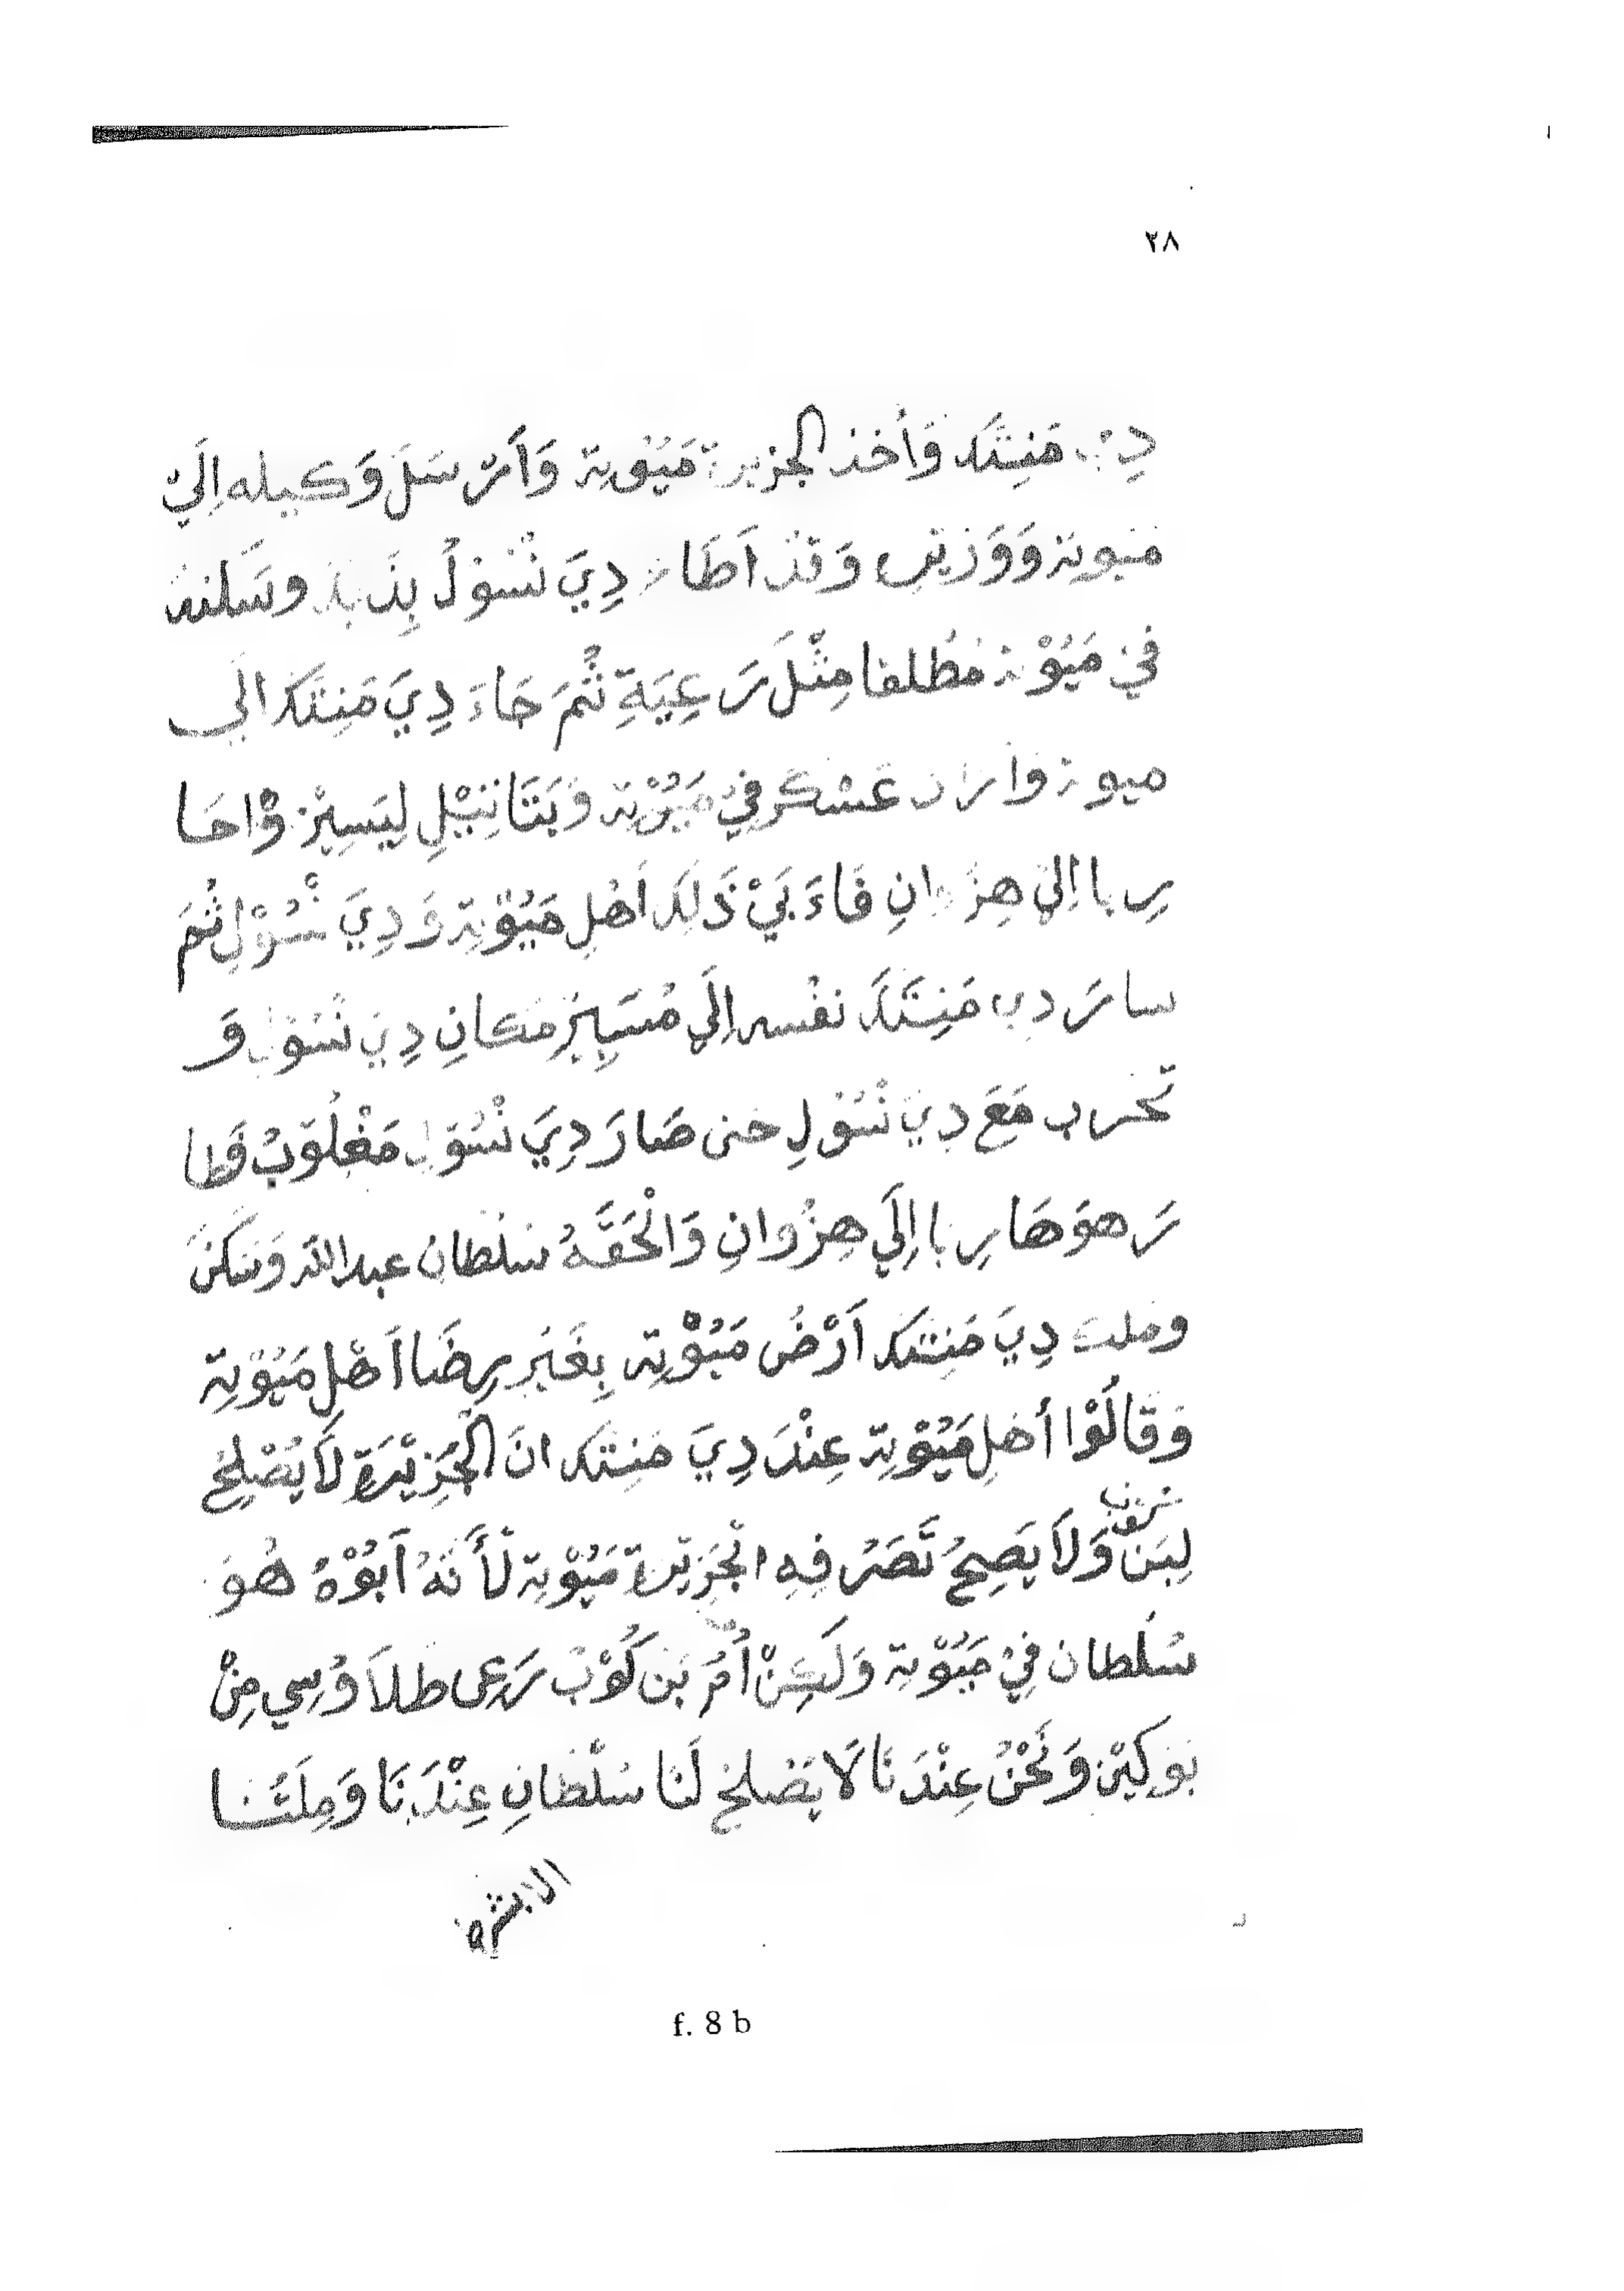 ٢٨
دِي مَنِتَكَ وَأَخَذ الجزيرة مَيُوتة وَأَرْسَلَ وَكيله اِلَيْ
ميوتة وَوَزيره وَقَدْ اَطَاع دِيَ نْسُوْلُ بِذَلِكَ وسَلْنَهُ
فِيْ مَيُوْتة مُطْلقا مِثْلَ رَعِيَةِ ثُمَّ جَاءَ دِيَ مَنِتَكَ الَي
ميوتة وَاَرَادَ عَسْكَر فِيْ مَيُوْتة وَبَتَا نِتِيْلِ لِيَسِيْرُ وْاحَا
رِبا اِلَيْ هِنْزُوانِ فَاءَبَيْ ذَلِكَ اَهْلِ مَيُوْتِة وَدِيَ نْسُوْلِ ثُمَّ
سارَ دِي مَنِتَكَ نفْسه اِلَي مُسَبِيْرُ مَكانِ دِيَ نْسُوْلِ وَ
تحَرب مَعَ دِيَ نْسُوْلِ حَتى صَارَ دِيَ نْسُوْلِ مَغْلُوَبْ فَطا
رَ هوَ هَارِبا اِلَي هِنْزُوانِ وَالْحَقَّهُ سُلْطانُ عبد الله وَسَكَنَ
وملك دِيَ مَنِتَكَ اَرْضُ مَيُوْتِة بِغَيْرِ رِضَا اَهْلِ مَيُوْتِة
وَقَالُوْا أَهْلِ مَيُوْتِة عِنْدَ دِيَ مَنِتَكَ انَ الْجَزِيْرَةِ لَا يُصْلِحُ
لِبَنَ وَلَا يَصِحُ تَصَرُفِهِ الْجَزِيْرة مَيُوْتِة لَأَنَهُ اَبُوْهُ هُوَ
سُلْطان فِيْ مَيُوْتِة وَلَكِنْ اُمُّ بَنَ كُوْبُ رَعِى طلاَوُسِي مِنْ
بَوِكِيْن وَنَحْنُ عِنْدَنَا لَا يَصْلحُ لَنَا سُلْطَانِ عِنْدَنَا وَمِلَتُنَا
f. 8 b